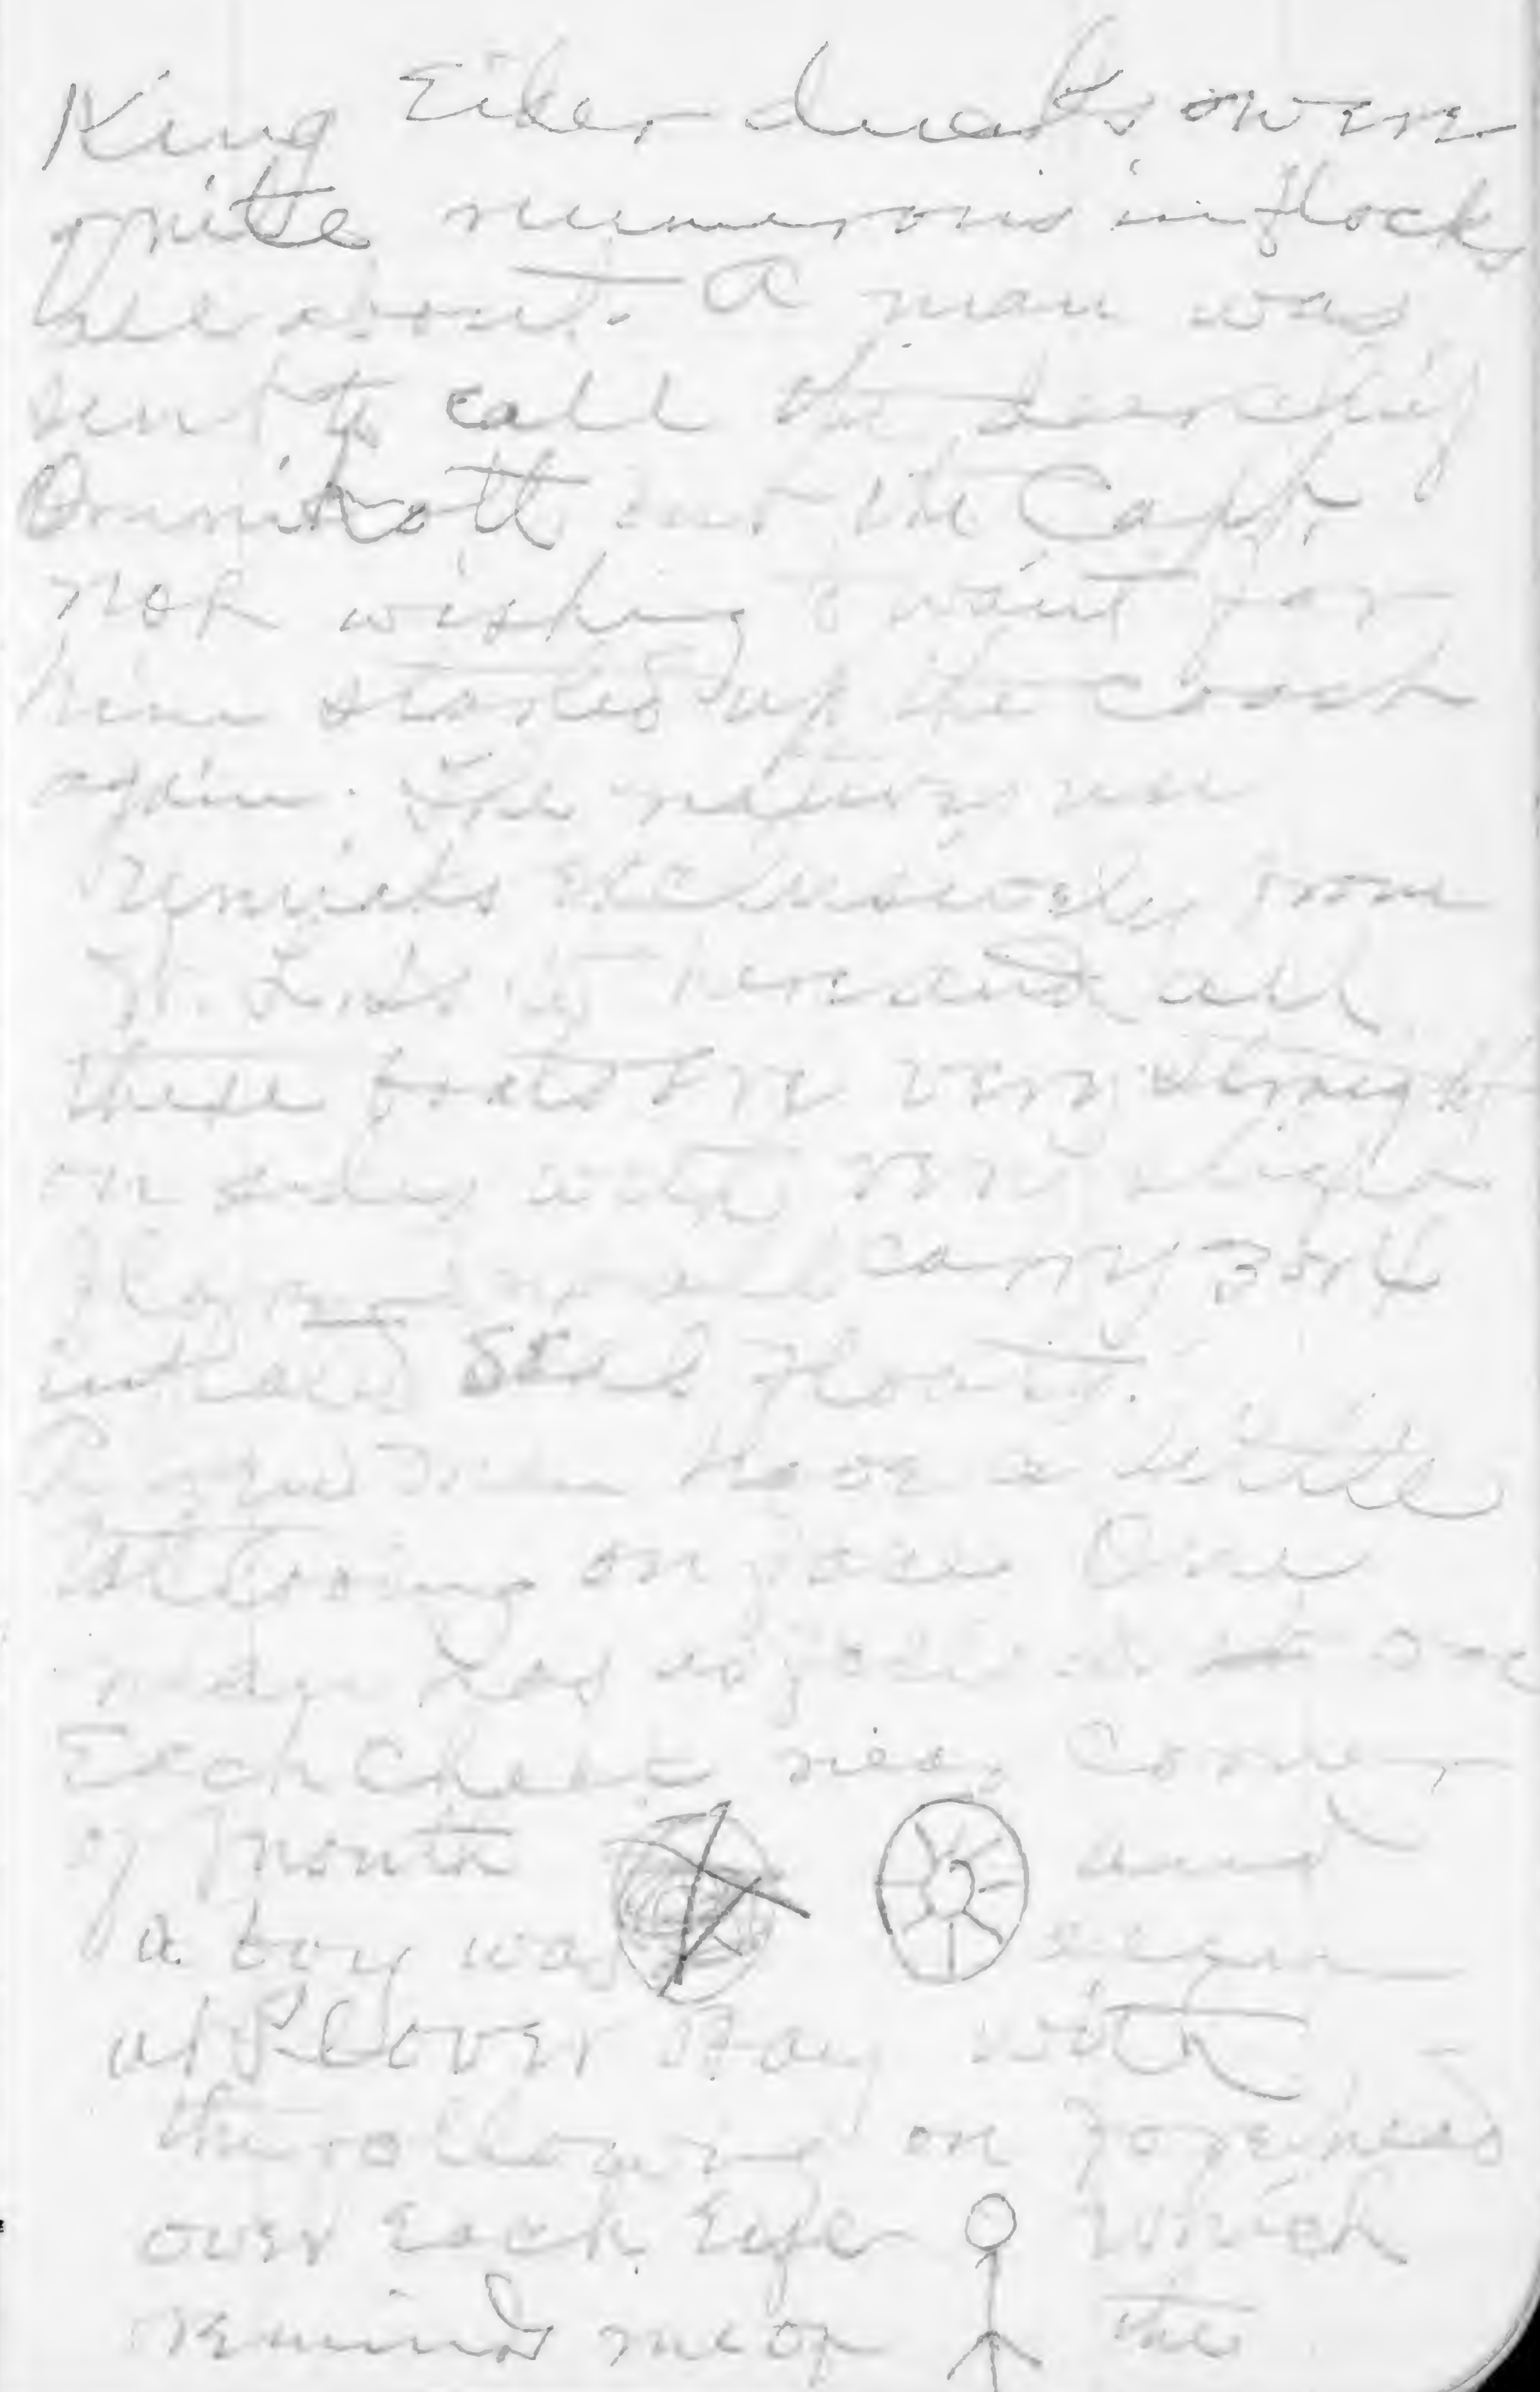 King Eider ducks were
quite numerous in flocks
all about. A man was
sent to call the
but the Capt.
not wishing to wait for
him started up the coast
again. The natives use
Umiaks exclusively from
St. L. Is. and all
these boats are very straight
on sides with very
carry 3 or 4
inflated seal
have a little
tattooing on face One
man had as follows one
Each Cheek near Corner
of Mouth and
a boy was seen
at Plover Bay with
the following on forehead
over Each Eye which
remind me of the